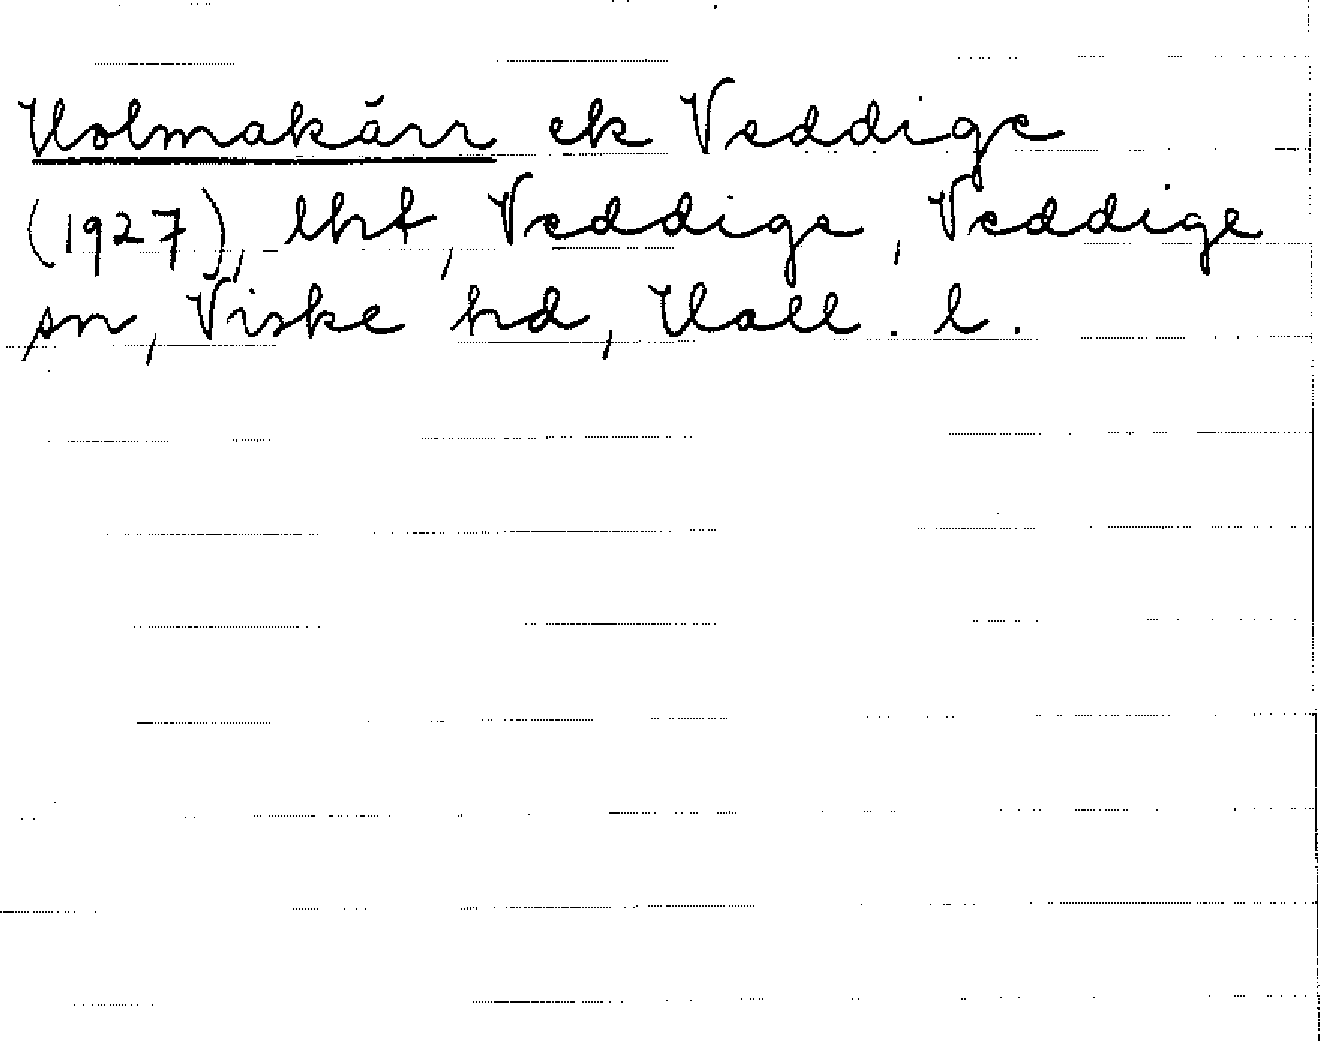 Holmakärr ek Veddige
(1927), lht, Veddige, Veddige
sn, Viske hd, Hall. l.